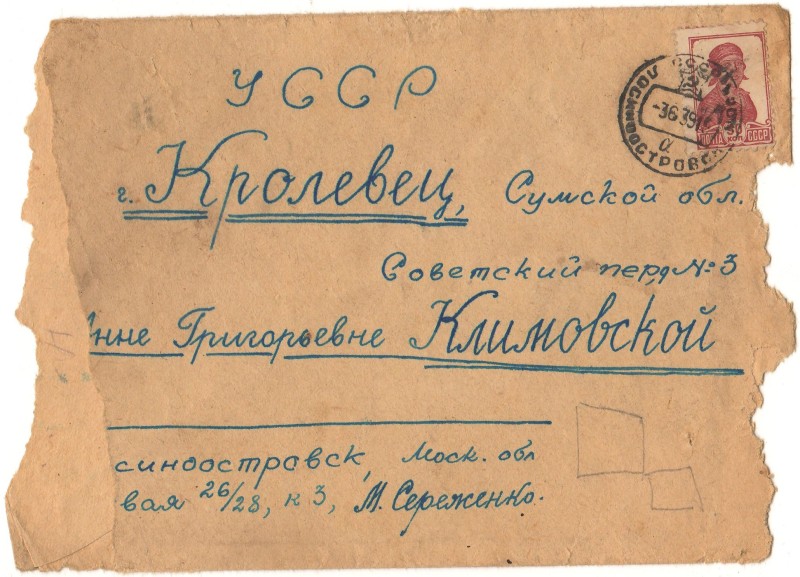 УССР
г. Кролевец, Сумской обл.
Советский пер, № 3
Анне Григорьевне Климовской
синоостровск, Моск. обл
вая 26/28, к 3, М. Сереженко.
ПОЧТА СССР
-3639
а